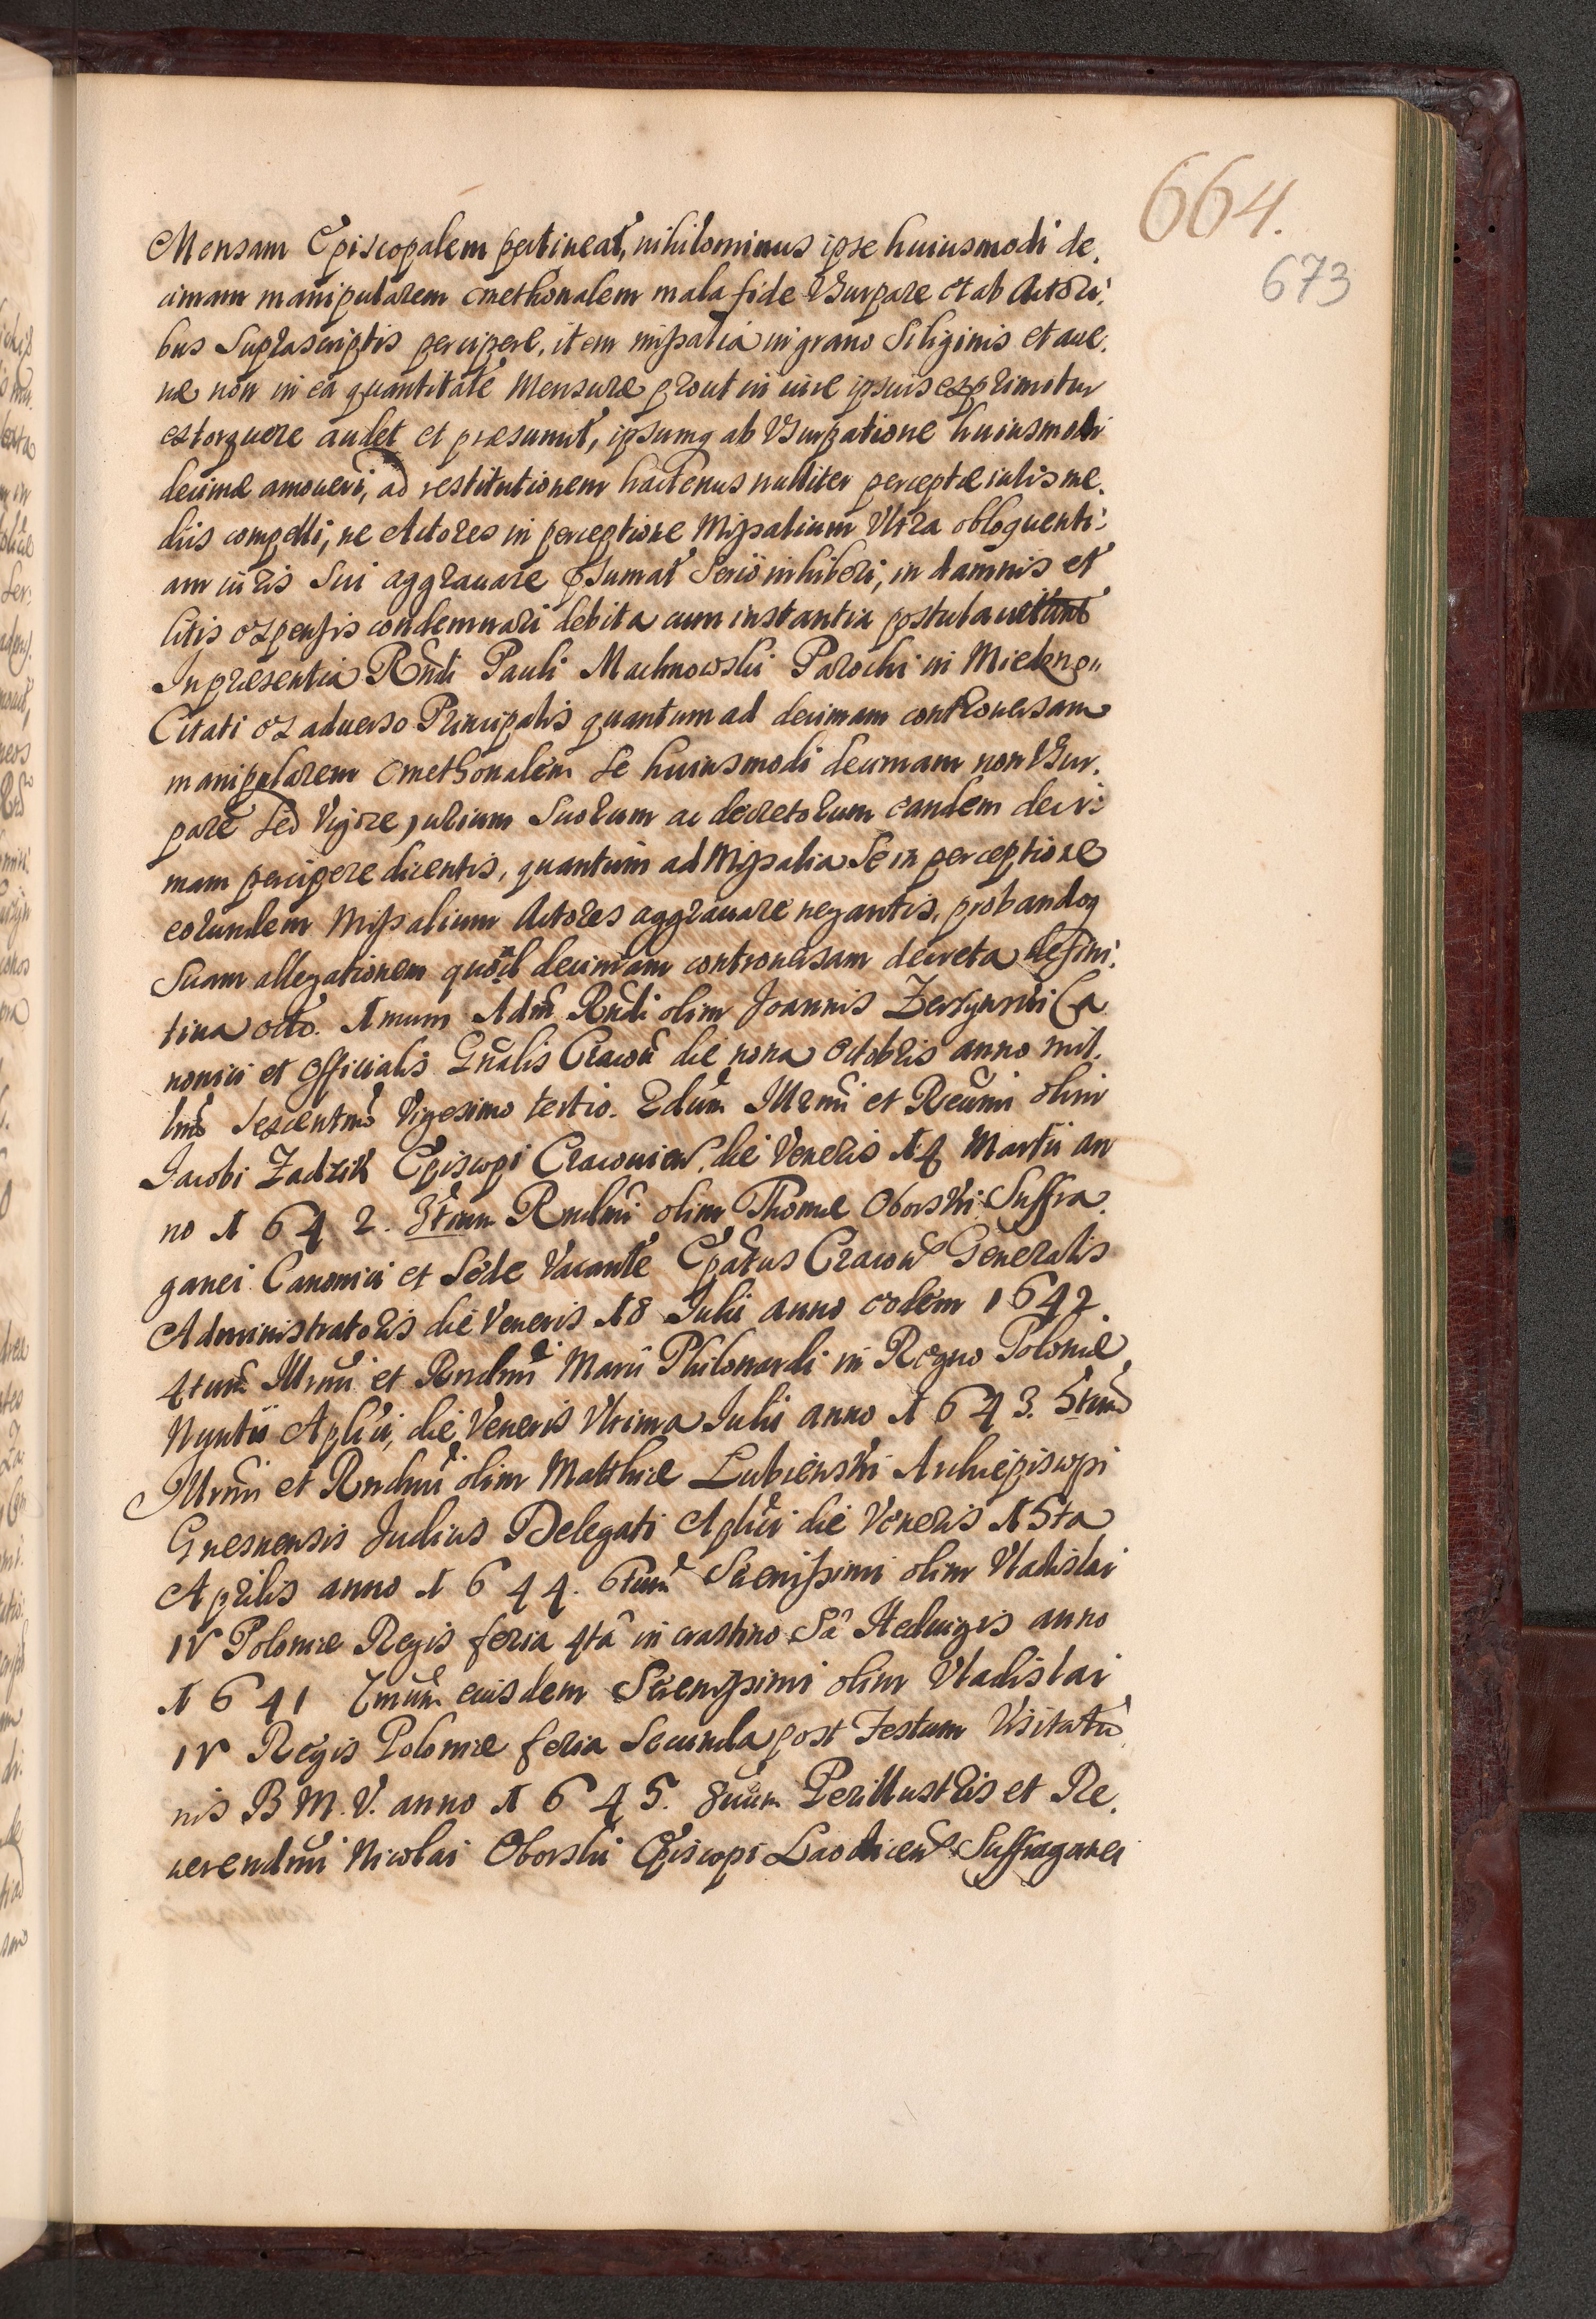 664.
673
Mensam Episcopalem pertineat, nihilominus ipse huiusmodi de,
cimam manipularem Cmethonalem mala fide Vsurpare et ab Actori:
bus Suprascriptis percipere, item missalia in grano Siliginis et aue,
næ non in ea quantitate Mensuræ prout in iure ipsius exprimitur
extorquere audet et præsumit, ipsumq ab Vsurpatione huiusmodi
decimæ amoueri, ad restitutionem hactenus nulliter perceptæ iuris me,
diis compelli, ne Actores in perceptione Missalium Vltra obloquenti:
am iuris Sui aggrauare pſumat Serio inhiberi, in damnis et
litis expensis condemnari debita cum instantia postulauit
In præsentia Rndi Pauli Machnowski Parochi in
Citati ex aduerso Principalis quantum ad decimam controuersam
manipularem Cmethonalem Se huiusmodi decimam non Vsur,
pare Sed Vigore iurium Suorum ac decretorum eandem deci:
mam percipere dicentis, quantum ad Missalia Se in perceptione
eorundem Missalium Actores aggrauare negantis, probandoq
Suam allegationem quoad decimam controuersam decreta defini:
tiua octo. 1mum Adm Rndi olim Joannis Ca
nonici et Officialis Gnalis Cracou die nona Octobris anno mil,
lmo Sexcentmo Vigesimo tertio. 2dum Illrmi et Reumi olim
Jacobi Zadzik Episcopi Cracouien. die Veneris 14 Martii an
no 1642. 3tium Rndmi olim Thomæ Oborski Suffra,
ganei Canonici et Sede Vacante Epatus Cracou Generalis
Administratoris die Veneris 18 Julii anno eodem 1642.
4tum Illrmi et Rndmi Marii Philonardi in Regno Poloniæ
Nuntii Aplici, die Veneris Vltima Julii anno 1643. 5tum
Illrmi et Rndmi olim Matthiæ Lubienski Archiepiscopi
Gnesnensis Judicis Delegati Aplici die Veneris 15ta
Aprilis anno 1644. 6tum Serenissimi olim Vladislai
IV Poloniæ Regis feria 4tâ in crastino Sâ Heduigis anno
1641 7mum eiusdem Serenissimi olim Vladislai
IV Regis Poloniæ feria Secunda post Festum Visitatio,
nis B M. V. anno 1645. 8uum Perillustris et Re,
uerendmi Nicolai Oborski Episcopi Laodicen Suffraganei